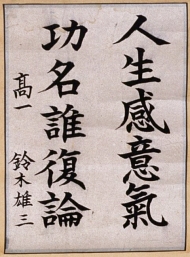 人生感意氣
功名誰復論
髙一　鈴木雄三